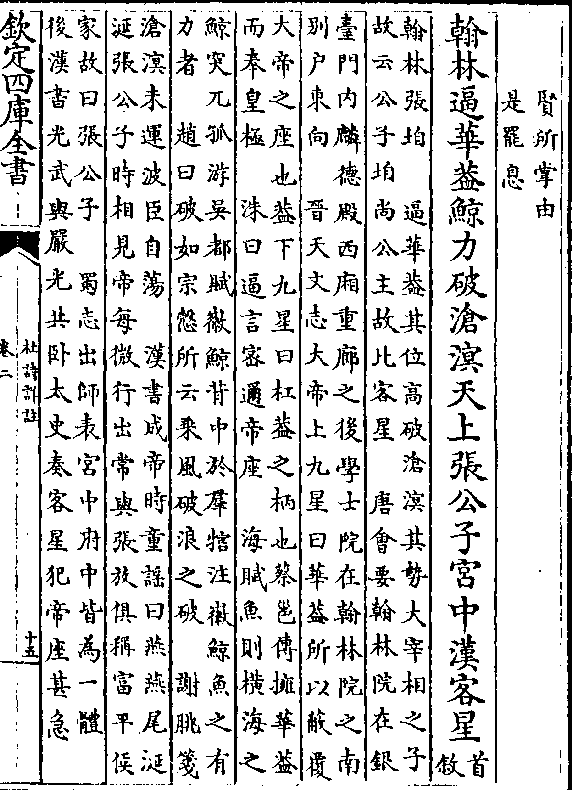 賢所掌由
是罷息
翰林逼華葢鯨力破滄溟天上張公子宮中漢客星首
敘
翰林張垍　逼華葢其位高破滄溟其勢大宰相之子
故云公子垍尚公主故比客星　唐會要翰林院在銀
臺門内麟德殿西廂重廊之後學士院在翰林院之南
别户東向　晉天文志大帝上九星曰華葢所以蔽覆
大帝之座也葢下九星曰杠葢之柄也蔡邕傳擁華葢
而奉皇極　洙曰逼言宻邇帝座　海賦魚則横海之
鯨突兀孤游吳都賦徽鯨背中於羣犗注徽鯨魚之有
力者　趙曰破如宗慤所云乘風破浪之破　謝朓箋
滄溟未運波臣自蕩　漢書成帝時童謡曰燕燕尾涎
涎張公子時相見帝每微行出常與張放俱稱富平侯
家故曰張公子　蜀志出師表宮中府中皆為一體
後漢書光武與嚴光共卧太史奏客星犯帝座甚急
欽定四庫全書
杜詩詳註
卷二
十五